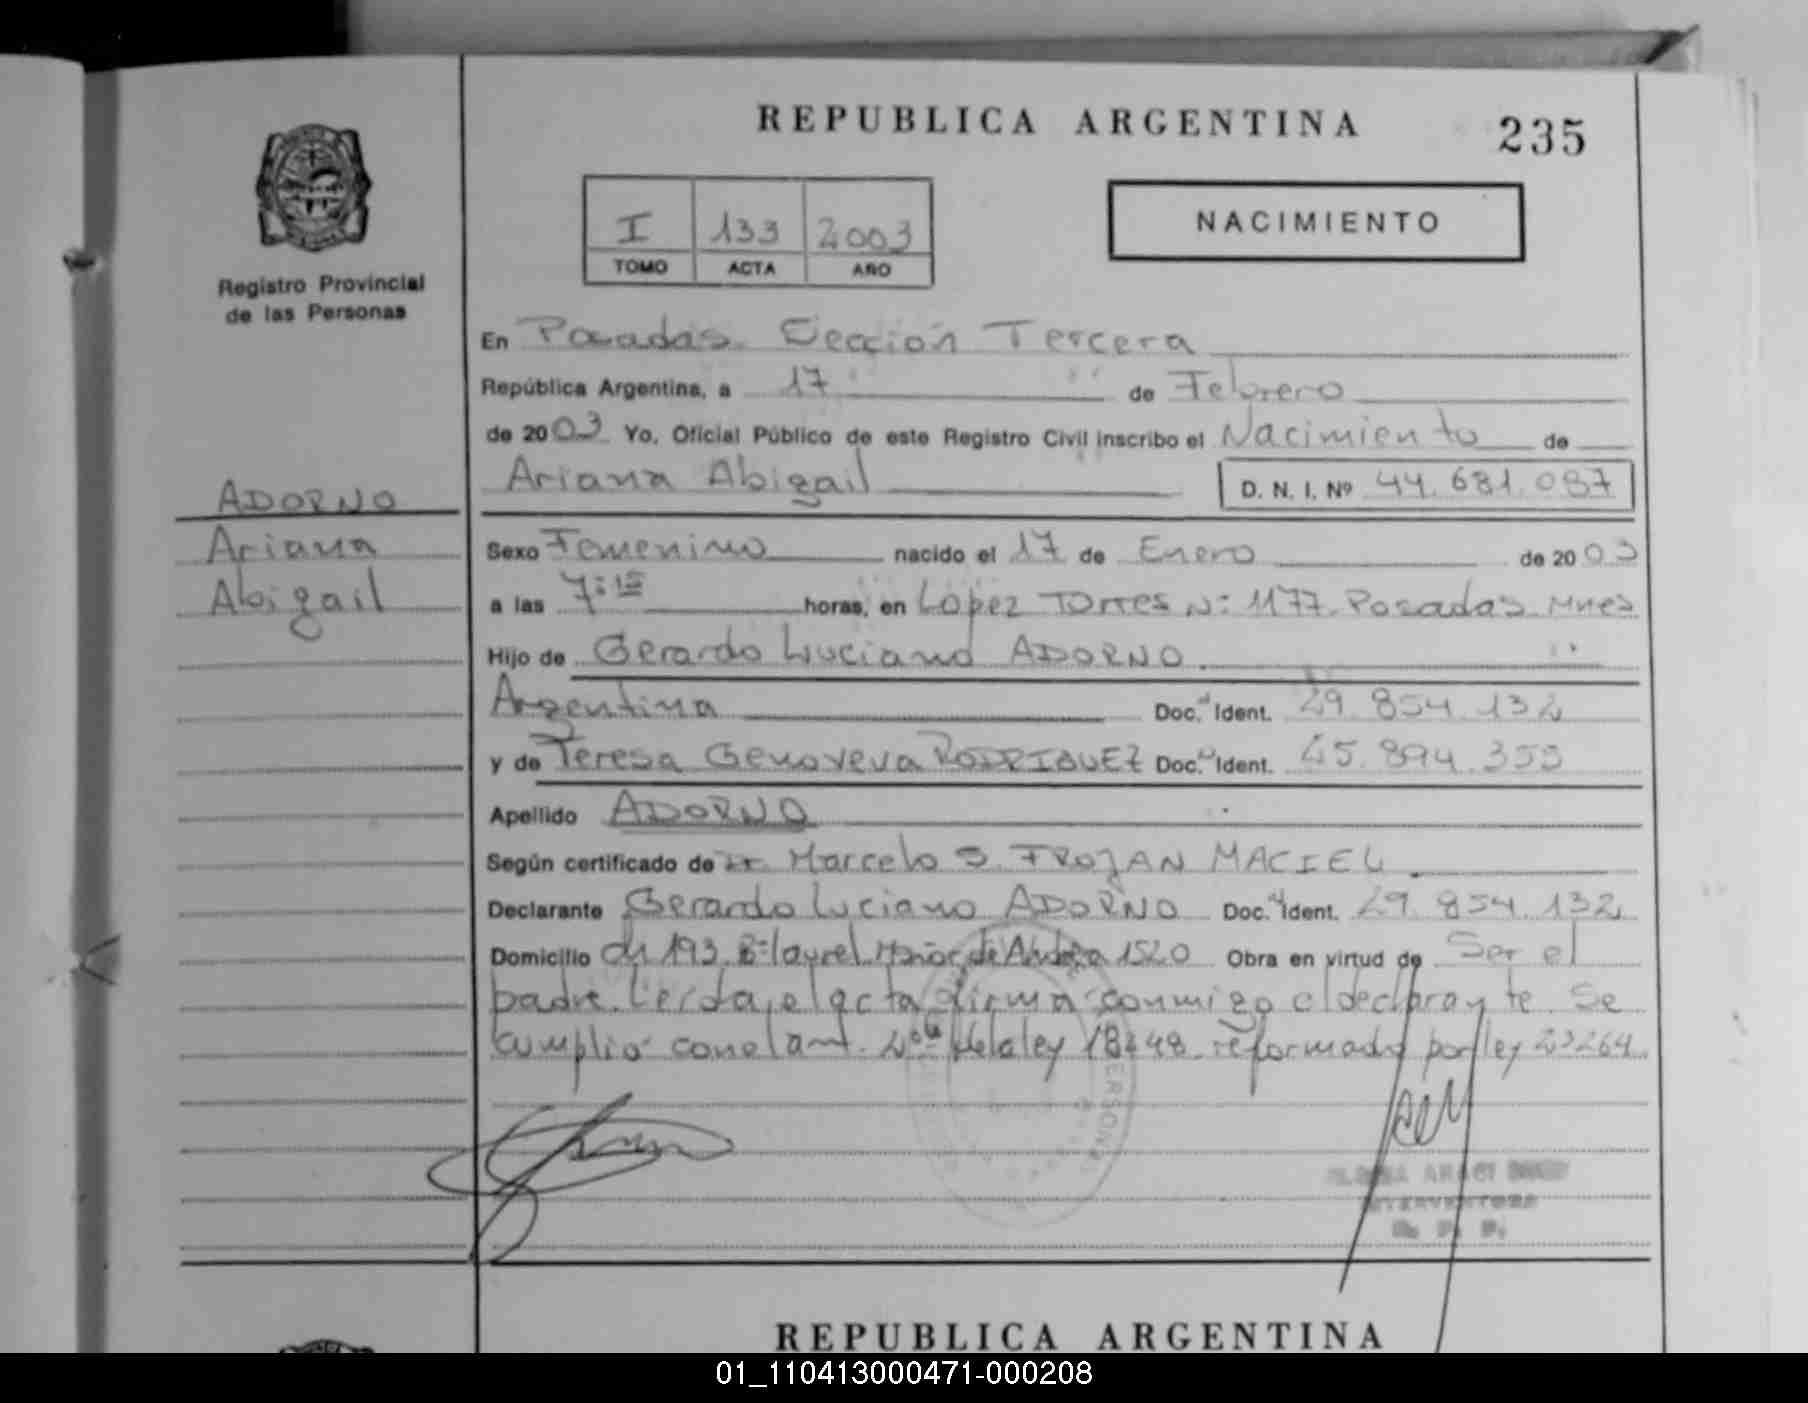 REPUBLICA ARGENTINA
235
I 133 2003
TOMO ACTA AÑO
NACIMIENTO
Registro Provincial
de las Personas
En Posadas Sección Tercera
República Argentina, a 17 de Febrero
de 2003 Yo, Oficial Público de este Registro Civil inscribo el Nacimiento de
Ariana Abigail D. N. I. Nº 44.681.087
ADORNO
Ariana
Abigail
Sexo Femenino nacido el 17 de Enero de 2003
a las 7:15 horas, en López Torres Nº 1177. Posadas Mnes
Hijo de Gerardo Luciano ADORNO.
Argentina Doc. Ident. 29.854.132
y de Teresa Genoveva RODRIGUEZ Doc. Ident. 25.894.355
Apellido ADORNO
Según certificado de Dr. Marcelo S. TROJAN MACIEL.
Declarante Gerardo Luciano ADORNO Doc. Ident. 29.854.132
Domicilio ch 193 Bº laurel 1520 Obra en virtud de Ser el
padre. Leída el acta firma conmigo el declarante. Se
cumplió con el art. 2º de la ley 18248 reformado por ley 23264.
REPUBLICA ARGENTINA
01_110413000471-000208